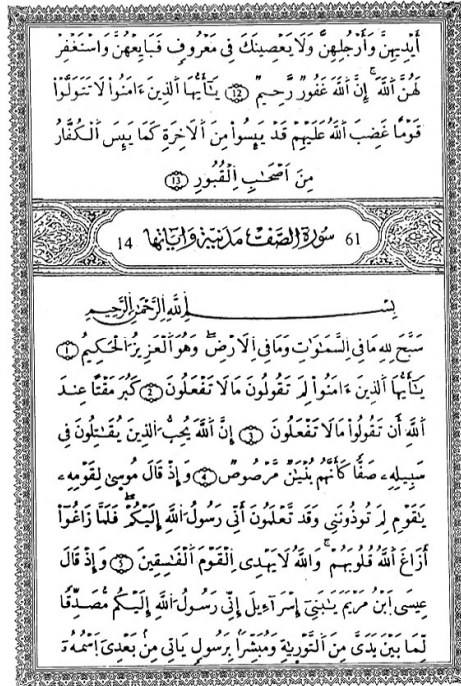 أَيْدِيهِنَّ وَأَرْجُلِهِنَّ وَلَا يَعْصِينَكَ فِي مَعْرُوفٍ فَبَايِعْهُنَّ وَاسْتَغْفِرْ
لَهُنَّ اَللَّهَ إِنَّ اَللَّهَ غَفُورٌ رَّحِيمٌ ١٢ يَٰأَيُّهَا اَلذِينَ ءَامَنُواْ لَا تَتَوَلَّوْاْ
قَوْمًا غَضِبَ اَللَّهُ عَلَيْهِمْ قَدْ يَئِسُواْ مِنَ اَلَاخِرَةِ كَمَا يَئِسَ اَلْكُفَّارُ
مِنَ اَصْحَٰبِ اِلْقُبُورِ ١٣
61 سورة الصف مدنية وءاياتها 14
بِسْمِ اِللَّهِ اِلرَّحْمَٰنِ اِلرَّحِيمِ
سَبَّحَ لِلهِ مَا فِي اِلسَّمَٰوَٰتِ وَمَا فِي اِلَارْضِ وَهُوَ اَلْعَزِيزُ اُلْحَكِيمُ ١
يَٰأَيُّهَا اَلذِينَ ءَامَنُواْ لِمَ تَقُولُونَ مَا لَا تَفْعَلُونَ ٢ كَبُرَ مَقْتًا عِندَ
اَللَّهِ أَن تَقُولُواْ مَا لَا تَفْعَلُونَ ٣ إِنَّ اَللَّهَ يُحِبُّ اُلذِينَ يُقَٰتِلُونَ فِي
سَبِيلِهِۦ صَفًّا كَأَنَّهُم بُنْيَٰنٌ مَّرْصُوصٌ ٤ وَإِذْ قَالَ مُوسَىٰ لِقَوْمِهِۦ
يَٰقَوْمِ لِمَ تُوذُونَنِي وَقَد تَّعْلَمُونَ أَنِّي رَسُولُ اُللَّهِ إِلَيْكُمْ فَلَمَّا زَاغُواْ
أَزَاغَ اَللَّهُ قُلُوبَهُمْ وَاللَّهُ لَا يَهْدِي اِلْقَوْمَ اَلْفَٰسِقِينَ ٥ وَإِذْ قَالَ
عِيسَى اَبْنُ مَرْيَمَ يَٰبَنِي إِسْرَآءِيلَ إِنِّي رَسُولُ اُللَّهِ إِلَيْكُم مُّصَدِّقًا
لِّمَا بَيْنَ يَدَيَّ مِنَ اَلتَّوْرَىٰةِ وَمُبَشِّرًا بِرَسُولٍ يَاتِي مِنۢ بَعْدِيَ اَسْمُهُۥٓ